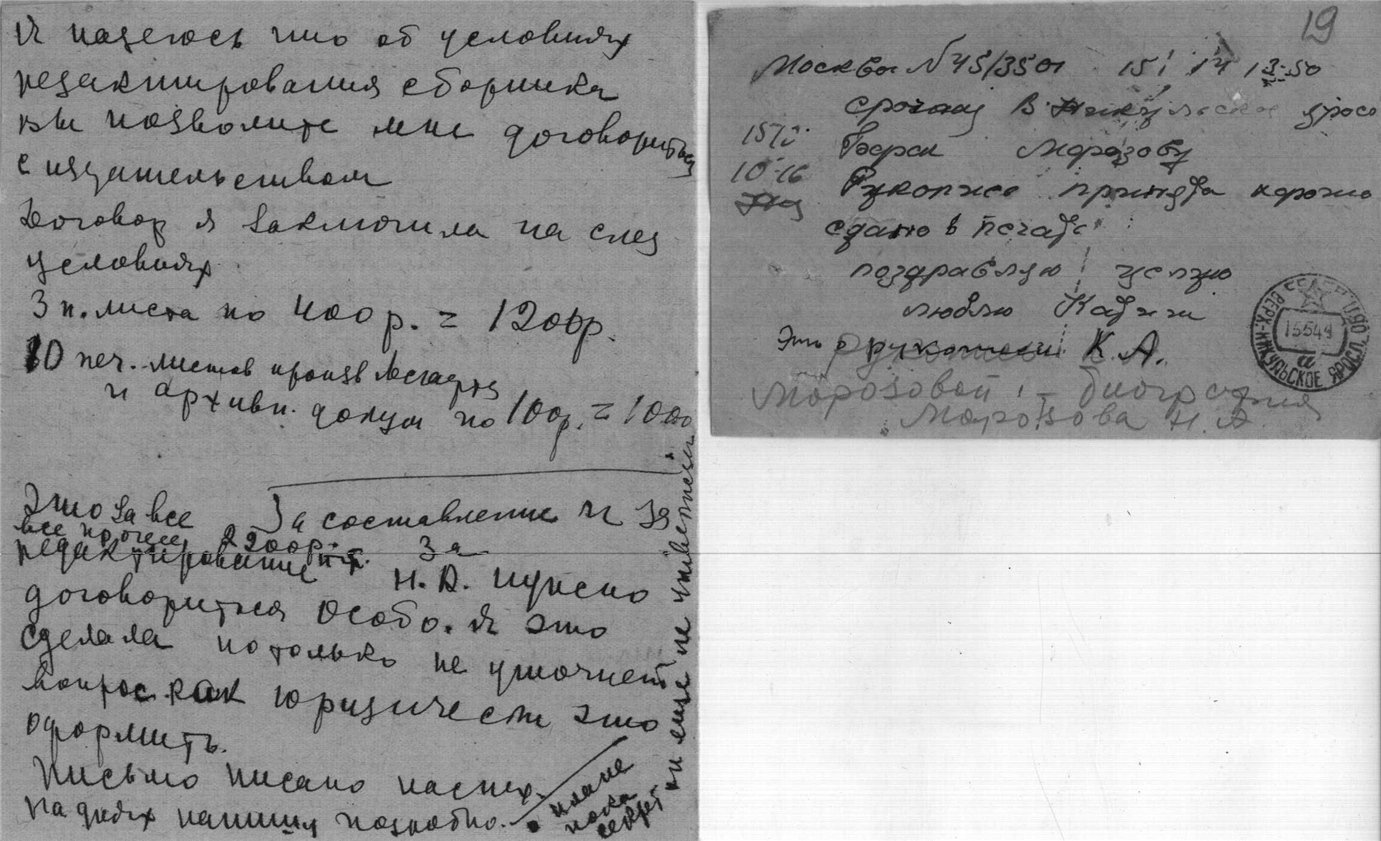 И надеюсь что об условиях
редактирования сборника
вы позволите мне договориться
с издательством
Договор я заключила на след
условиях
3 п. листа по 400 р. = 1200р.
10 печ. листов произв
и архивн. докум по 100р. = 1000
Это за все
все про все 2200р.
За составление и за
редактирование За
Н.А. нужно
договориться особо. Я это
сделала но только не уточнен
вопрос как юридически это
оформить.
Письмо писано наспех.
На днях напишу подробно.
пока
секрет
19
Москвы №45/3501 15/ 14 13-50
срочная В Никульское Яросл
15/2 Борок Морозову
10-16 Рукопись принята хорошо
сдано в печать
поздравляю целую
люблю Надежи
Это о рукописи К.А.
Морозовой - биография
Морозова Н.А.
СССР
ВЕРХ-НИКУЛЬСКОЕ ЯРОСЛ. ОБЛ.
15649
а